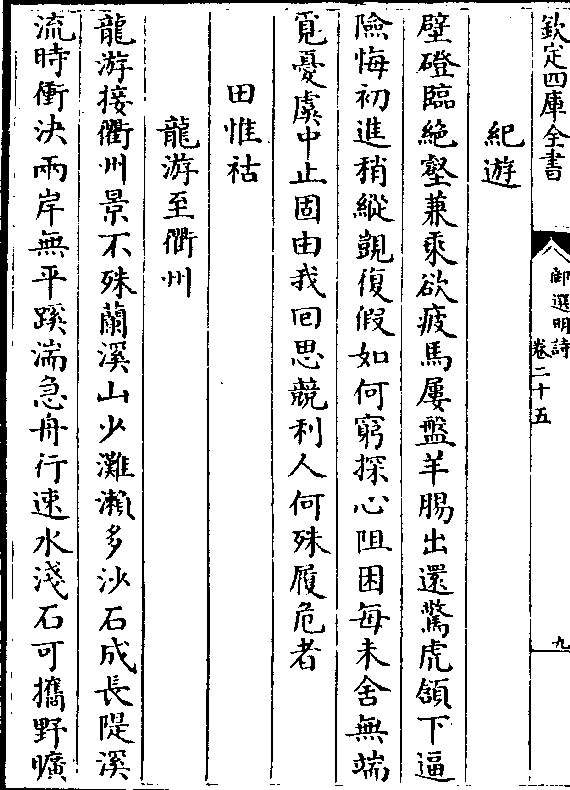 欽定四庫全書
御選明詩
卷二十五
九
紀遊
壁磴臨絶壑兼乘欲疲馬屢盤羊腸出還驚虎頷下逼
險悔初進稍縱覬復假如何窮探心阻困每未舍無端
覓憂虞中止固由我回思競利人何殊履危者
田惟祜
龍游至衢州
龍游接衢州景不殊蘭溪山少灘瀬多沙石成長隄溪
流時衝決兩岸無平蹊湍急舟行速水淺石可攜野曠